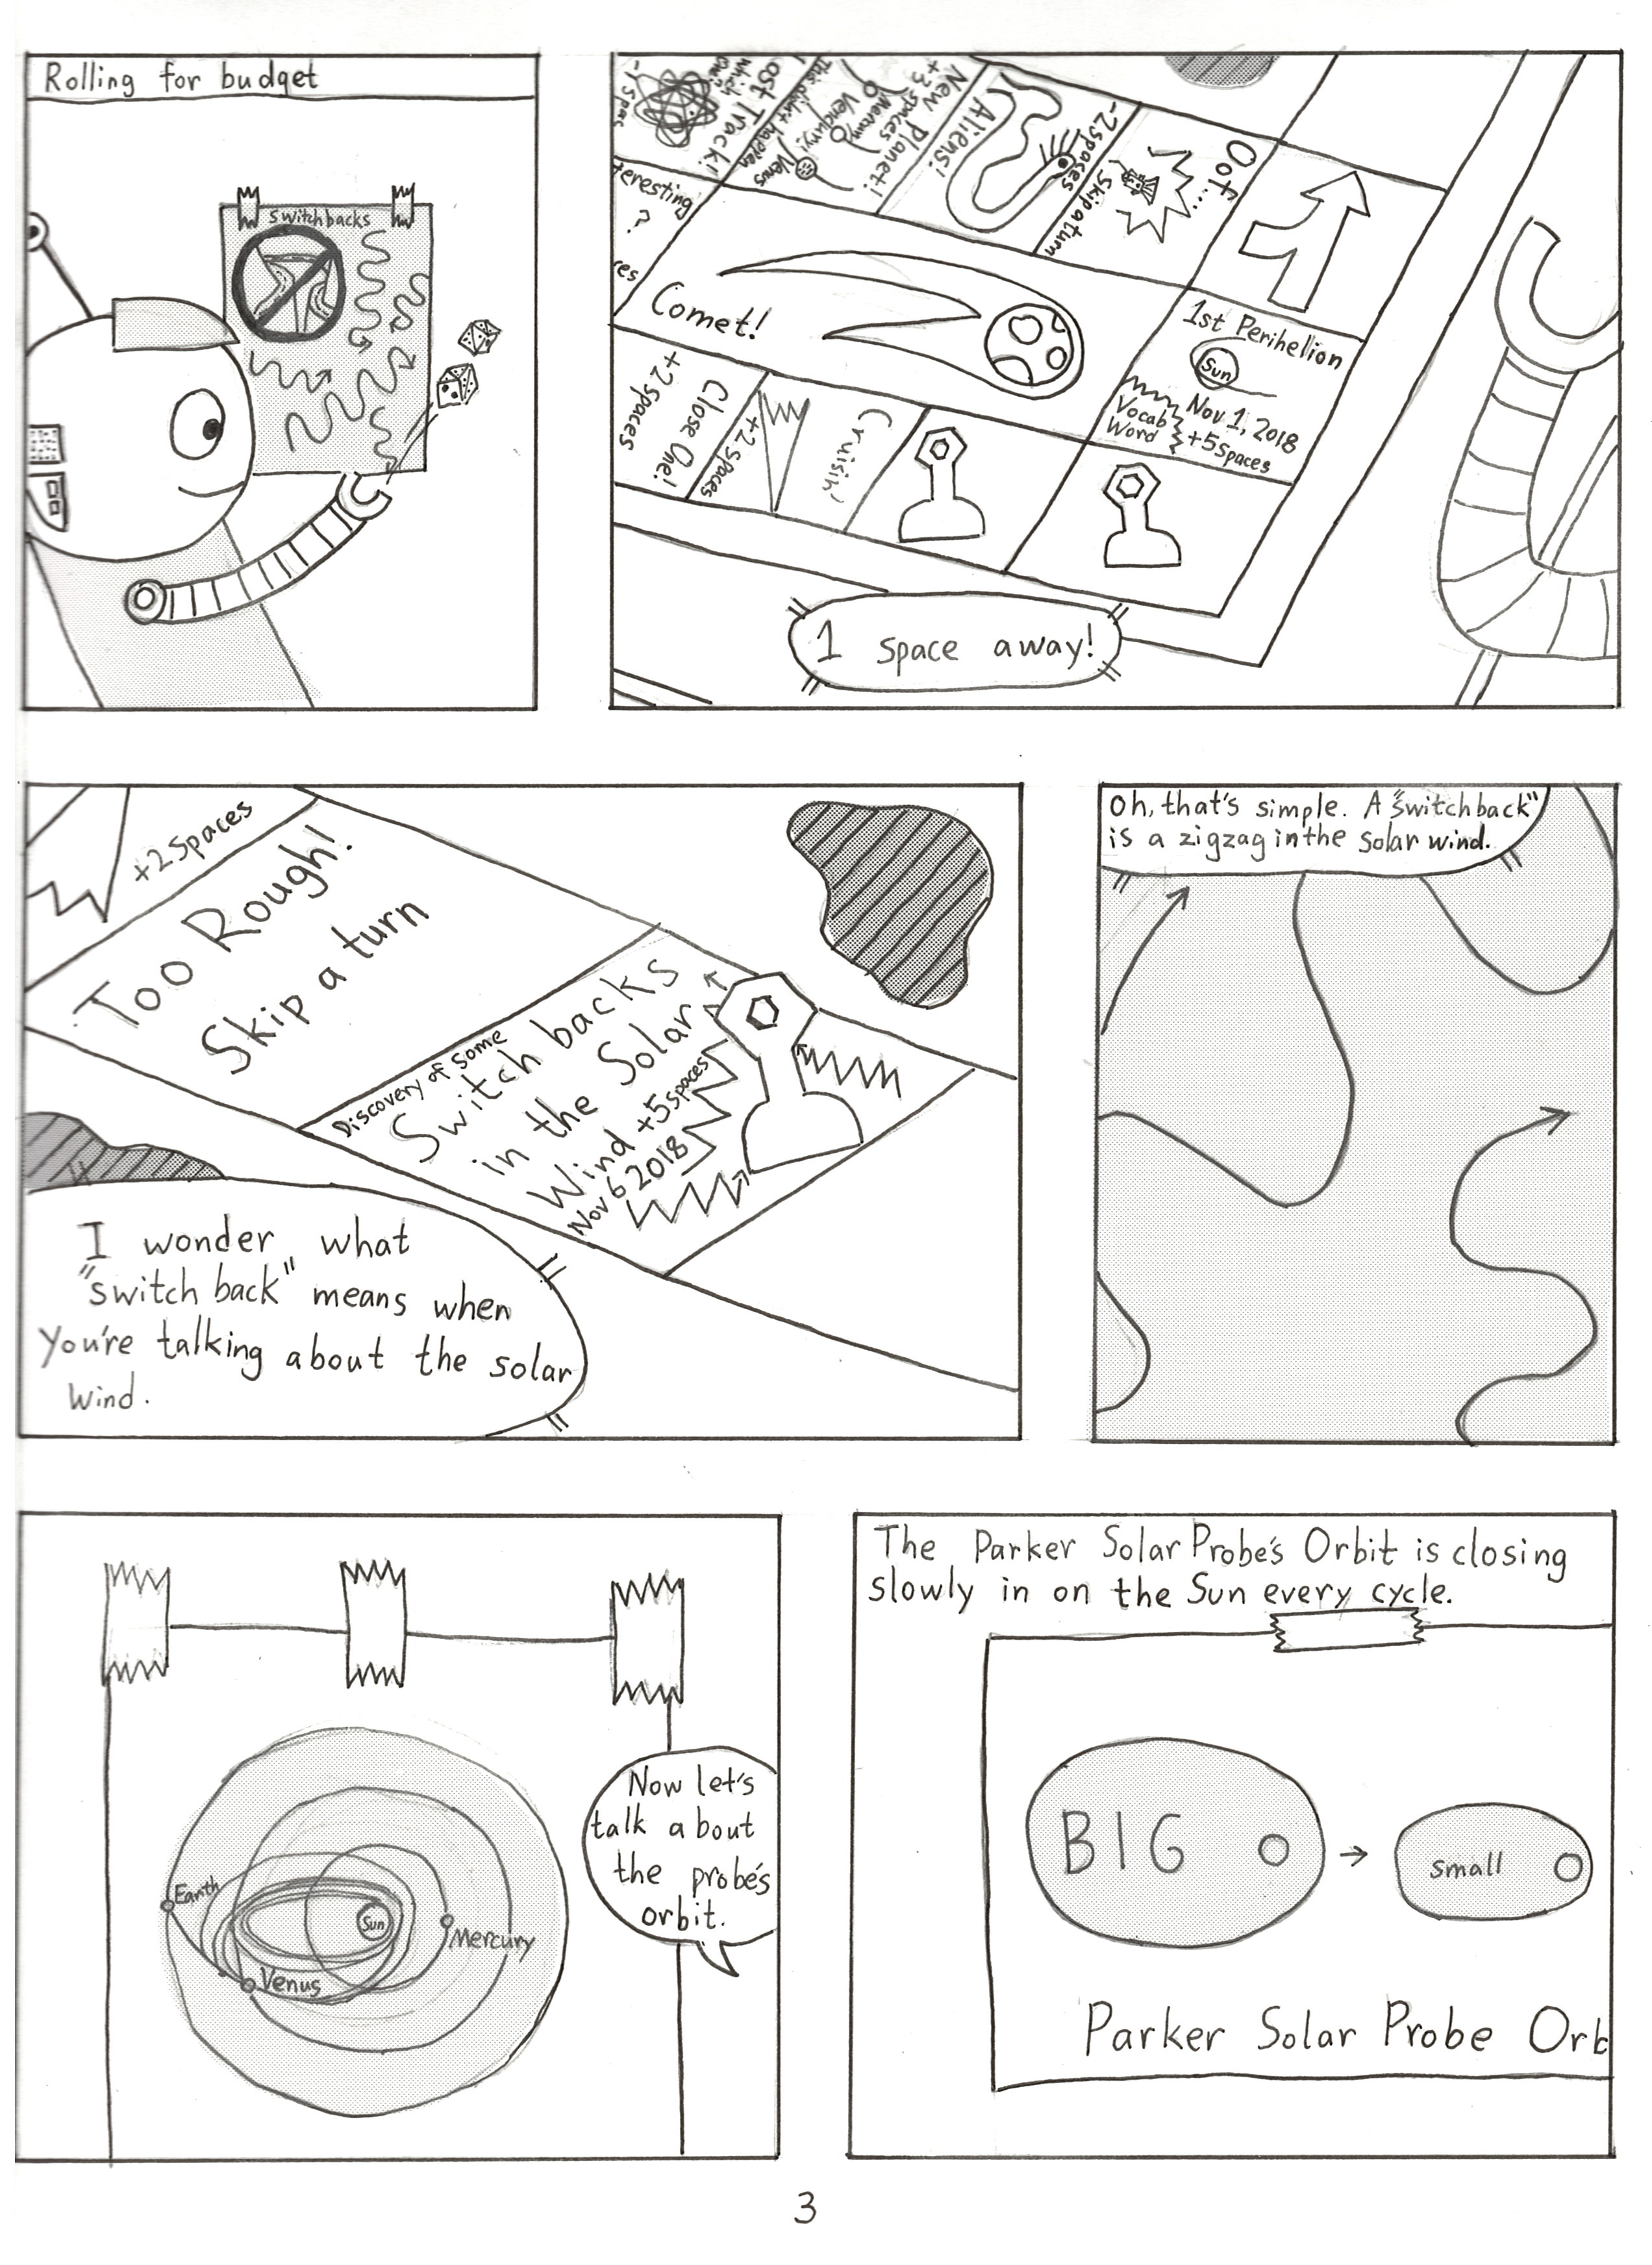 Rolling for budget
Switchbacks
-1 Space
Lost Track!
Which one?
This didn't happen
New Planet!
+3 spaces
Mercury
Vencury!
Venus
Aliens!
-2 spaces
Skip a turn
Oof....
?
Comet!
1st Perihelion
Sun
Nov 1, 2018
Vocab
Word
+5 spaces
Close One!
+2 spaces
Cruisin'
+2 spaces
1 space away!
+2 Spaces
Too Rough!
Skip a turn
Discovery of Some
Switch backs
in the Solar
Wind +5 spaces
Nov 6 2018
I wonder what
"switch back" means when
You're talking about the solar
wind.
Oh, that's simple. A "switchback"
is a zigzag in the solar wind.
Earth
Sun
Mercury
Venus
Now let's
talk about
the probe's
orbit.
The Parker Solar Probe's Orbit is closing
slowly in on the Sun every cycle.
BIG
small
Parker Solar Probe Orb
3